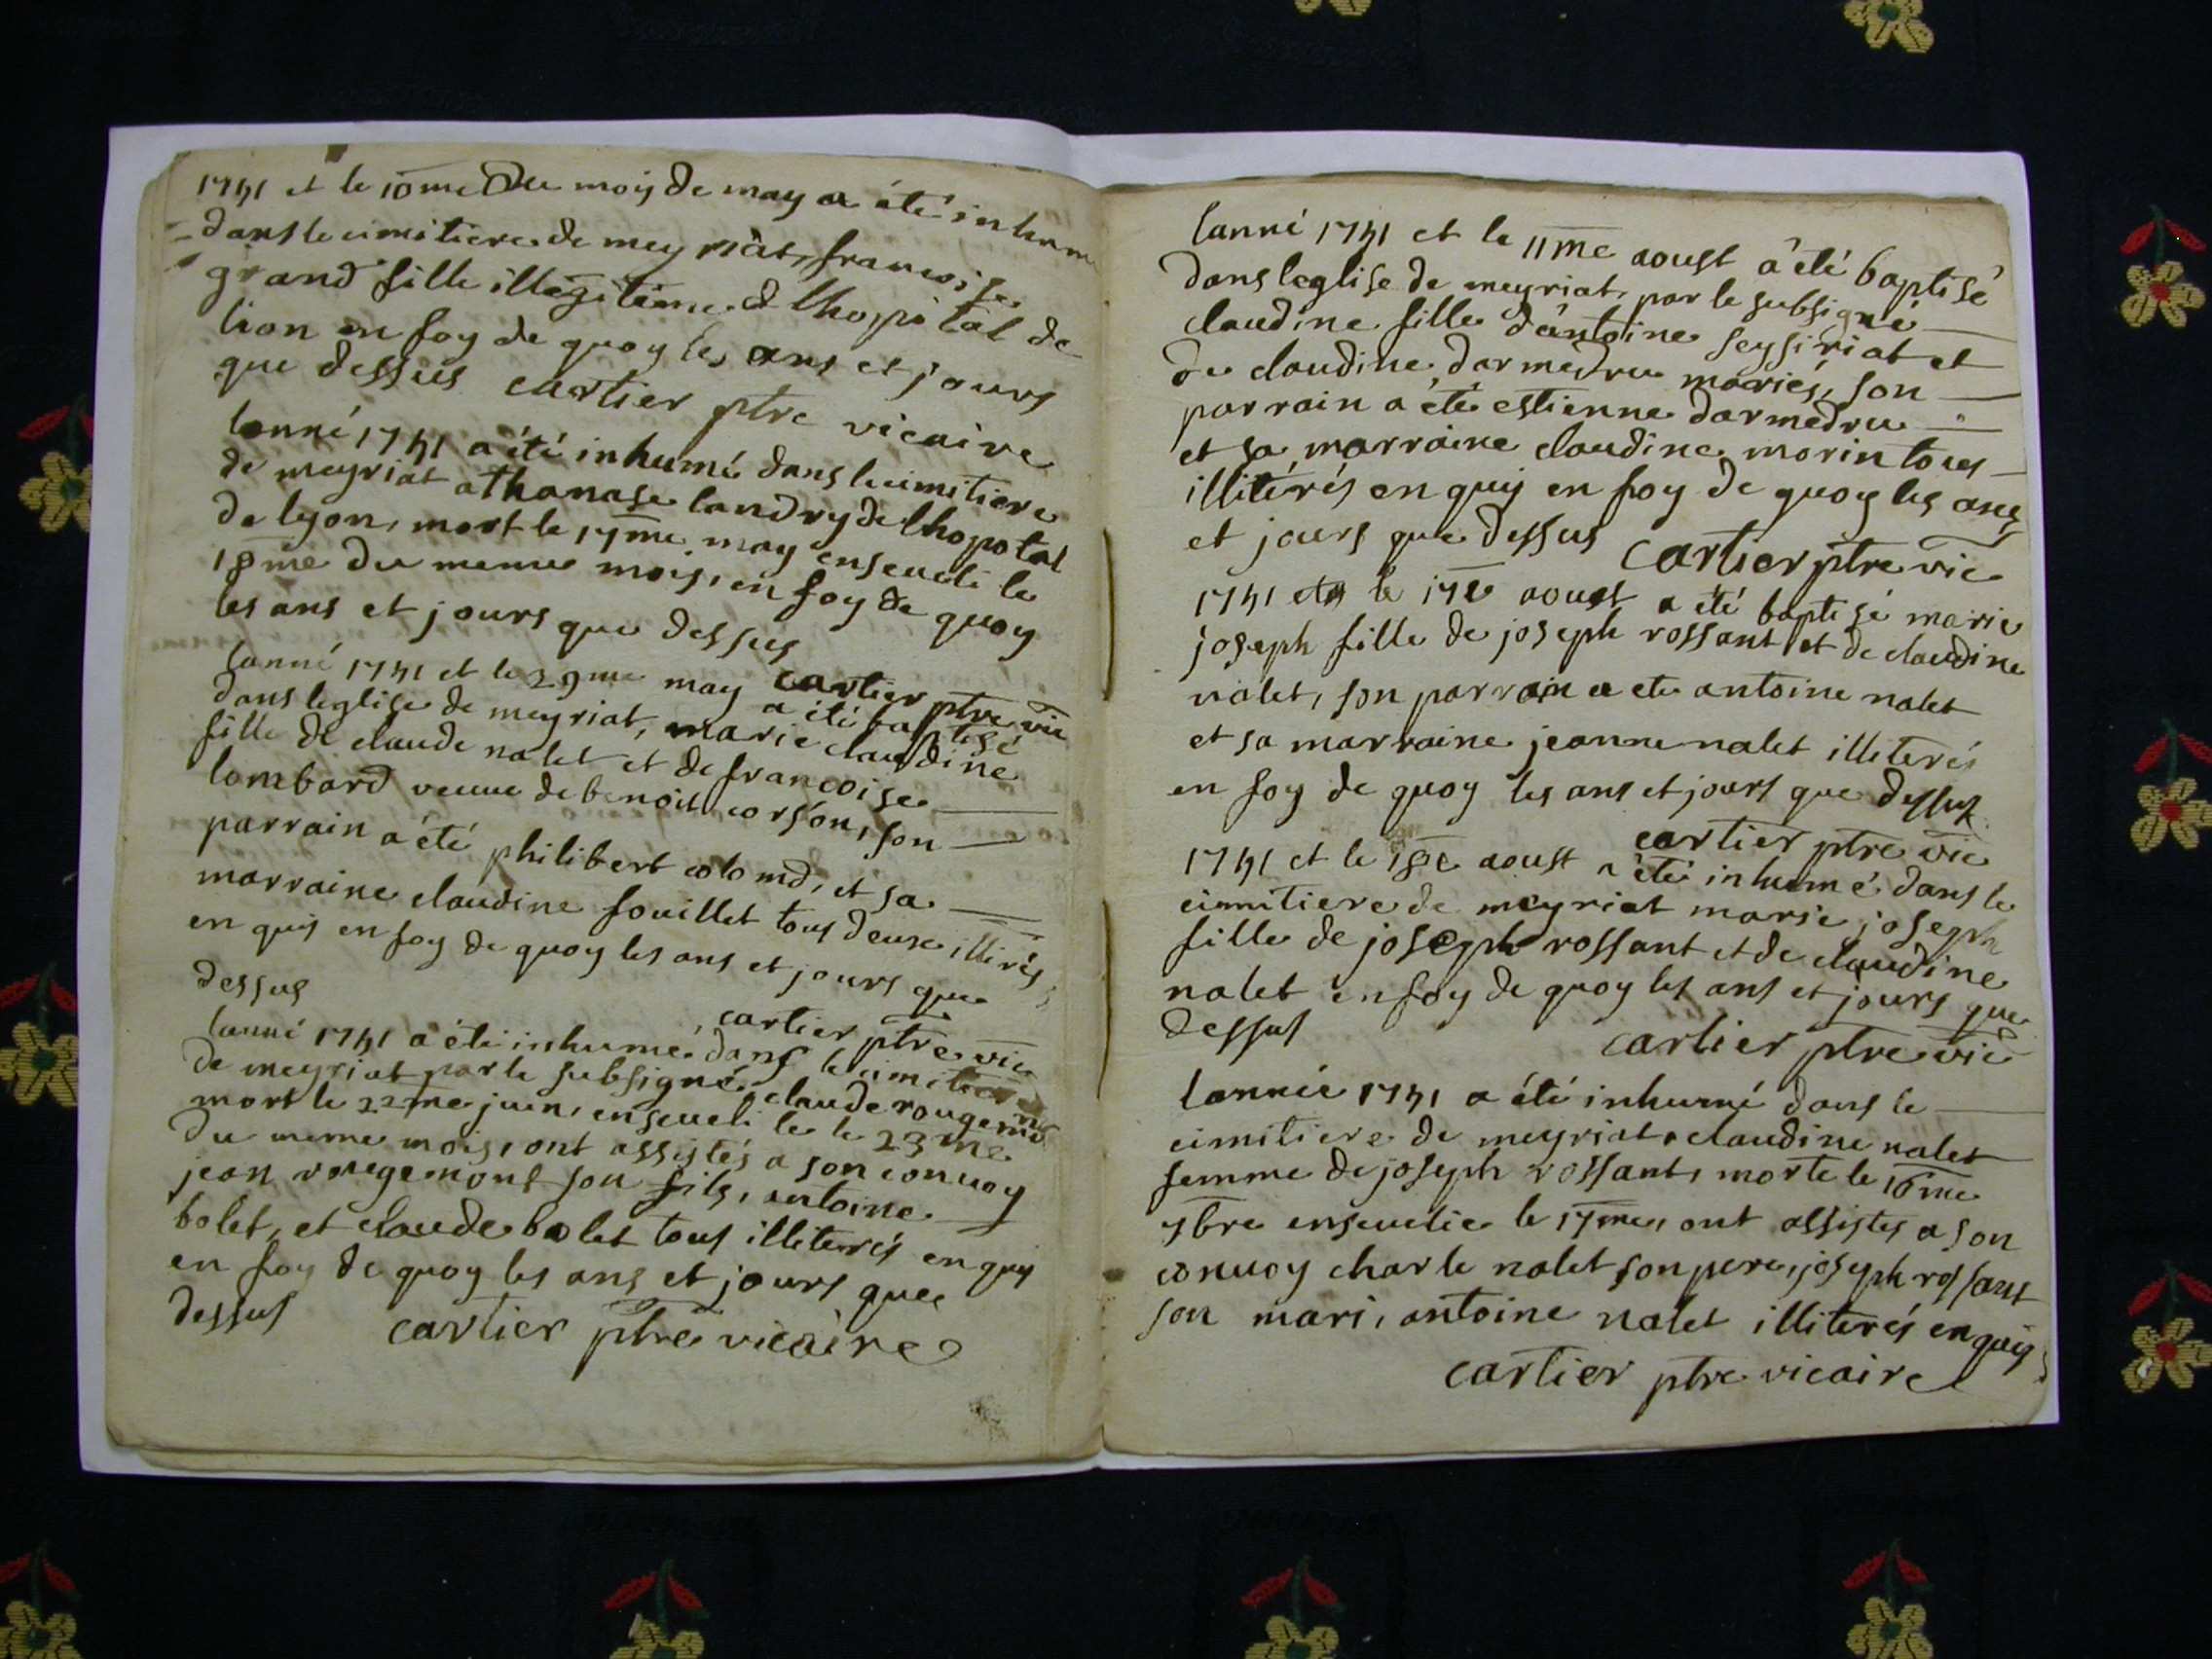 1741 et le 10me Du mois de may a été inhumé
dans le cimitiere de meyriat, francoise
grand fille illegitime d lhopital de
lion en foy de quoy les ans et jours
que dessus cartier ptre vicaire
lanné 1741 a été inhumé dans le cimitiere
de meyriat athanase landry de lhopotal
de lyon, mort le 17me may enseveli le
18me du meme mois, en foy de quoy
les ans et jours que dessus
cartier ptre vic
lanné 1741 et le 29me may a été baptisé
dans leglise de meyriat, marie claudine
fille de claude nalet et de francoise
lombard veuve de benoit corson, son
parrain a été philibert colomd, et sa
marraine claudine fouillet tous deux illirés
en quis en foy de quoy les ans et jours que
dessus
cartier ptre vic
lanné 1741 a été inhumé dans le cimitiere
de meyriat par le subsigné, claude rougemd
mort le 22me juin, enseveli le le 23me
du meme mois, ont assistés a son convoy
jean rougemont son fils, antoine
bolet, et claude bolet tous illiterés en quis
en foy de quoy les ans et jours que
dessus cartier ptre vicaire
lanné 1741 et le 11me aoust a été baptisé
dans leglise de meyriat, par le subsigné
claudine fille dantoine seysiriat et
de claudine darmedru mariés, son
parrain a été estienne darmedru
et sa marraine claudine morin tous
illitérés en quis en foy de quoy les ans
et jours que dessus cartier ptre vic
1741 et le 17e aoust a été baptisé marie
joseph fille de joseph rossant et de claudine
nalet, son parrain a ete antoine nalet
et sa marraine jeanne nalet illiterés
en foy de quoy les ans et jours que dessus
cartier ptre vic
1741 et le 18e aoust a été inhumé dans le
cimitiere de meyriat marie joseph
fille de joseph rossant et de claudine
nalet en foy de quoy les ans et jours que
dessus cartier ptre vic
lannée 1741 a été inhumé dans le
cimitiere de meyriat claudine nalet
femme de joseph rossant, morte le 16me
7bre ensevelie le 17me, ont assistes a son
convoy charle nalet son pere, joseph rossant
son mari, antoine nalet illiterés en quis
cartier ptre vicaire